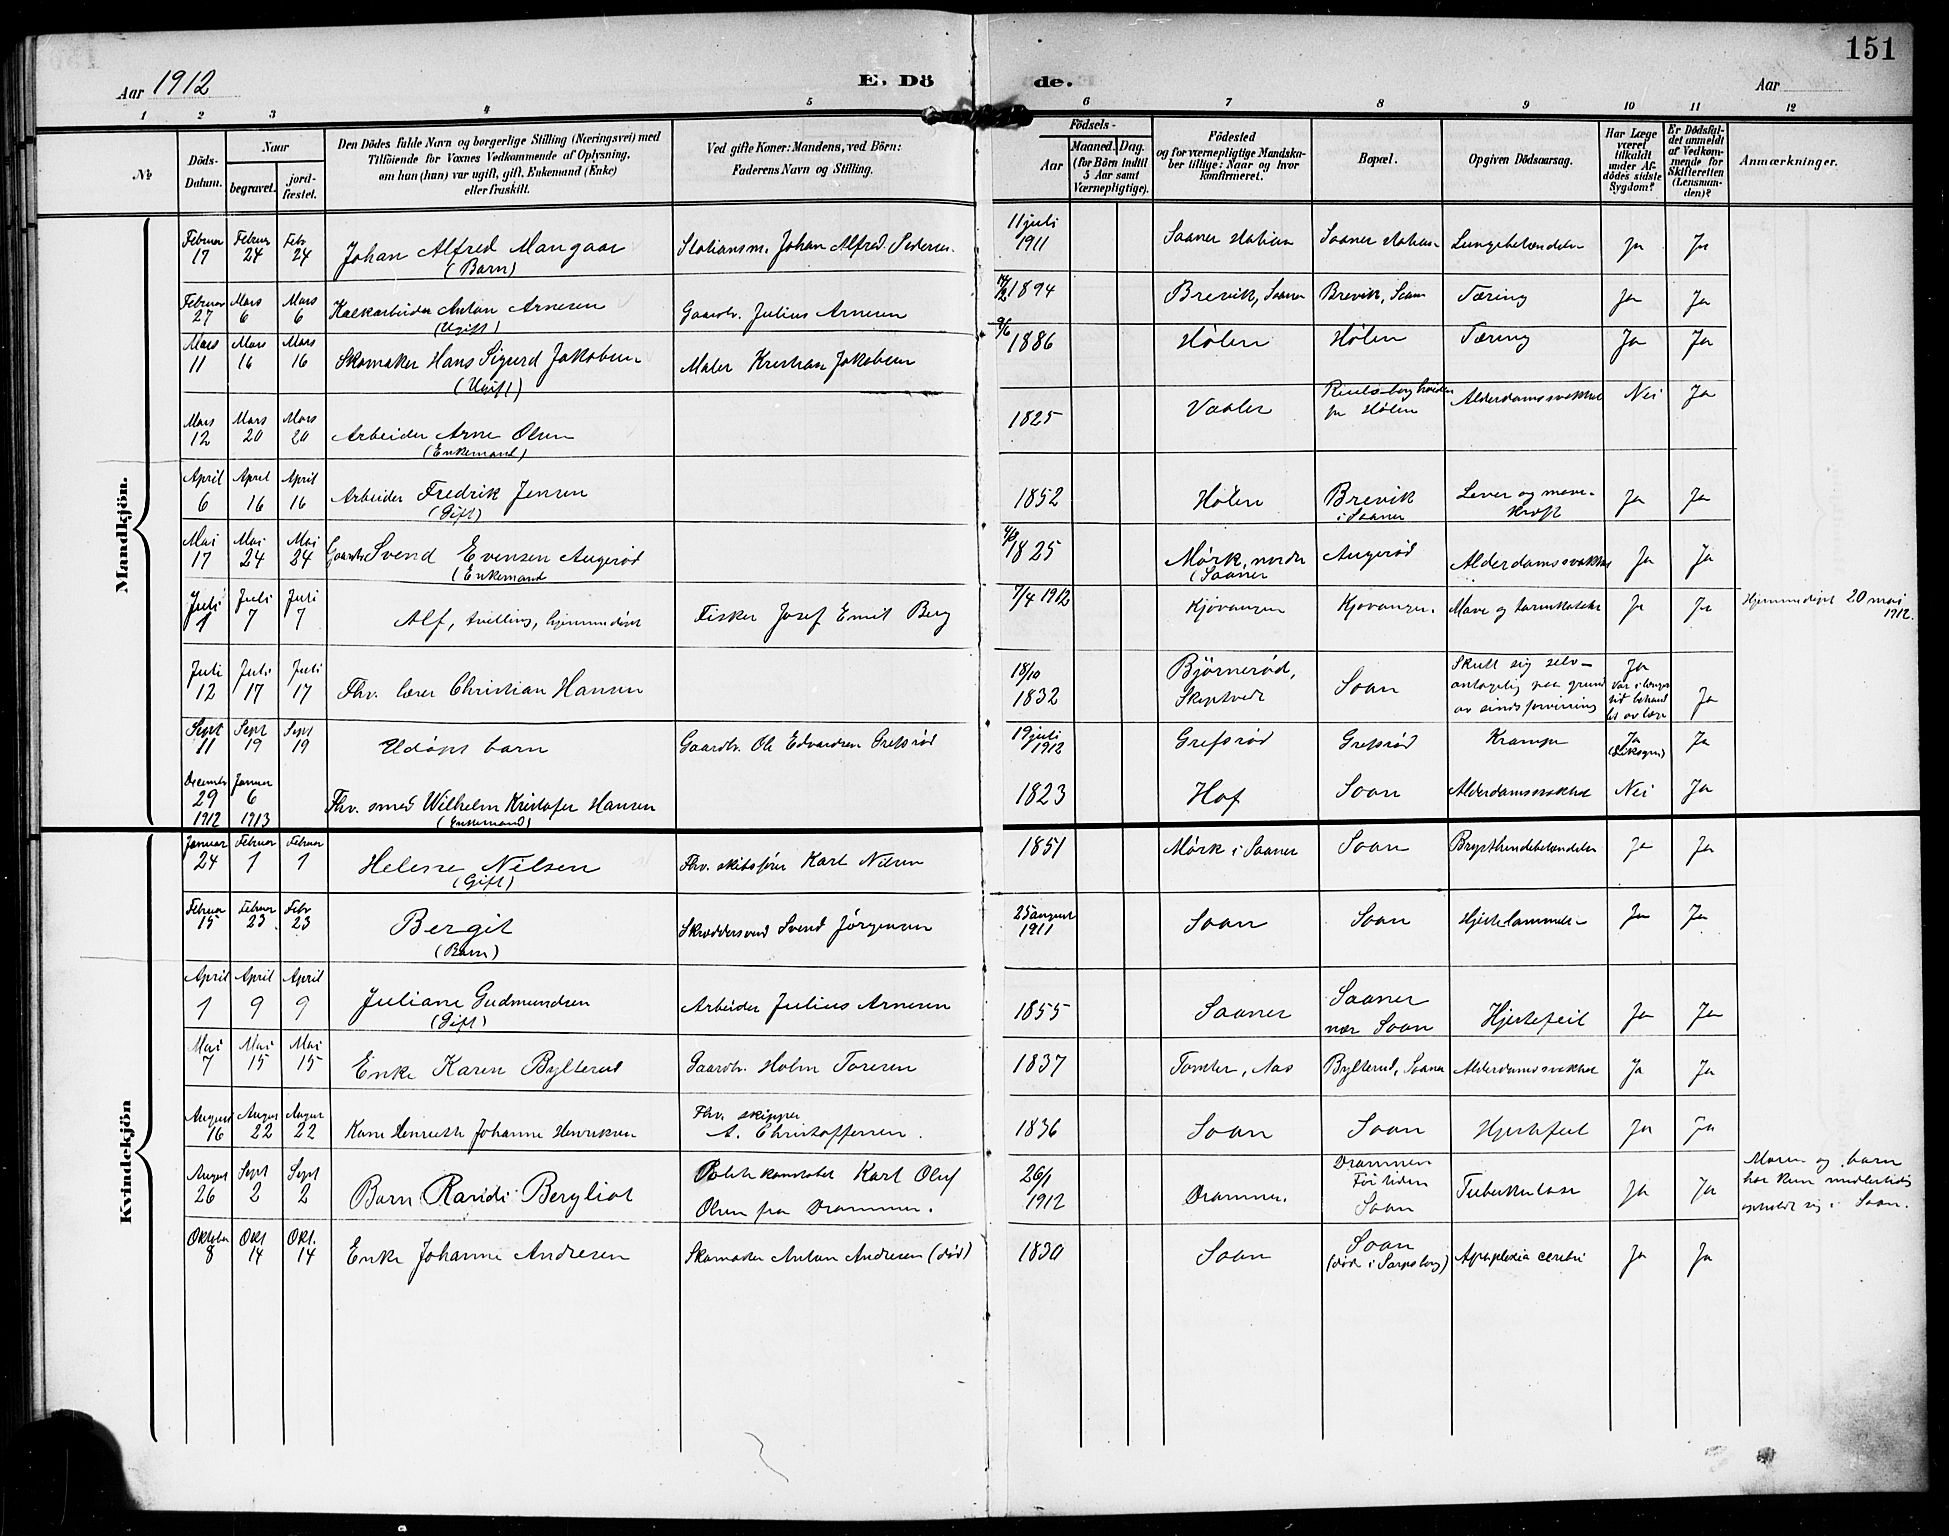 151
Aar 1912
E. Dö de.
Aar
1 2 3 4 5 6 7 8 9 10 11 12
No
Döds-Datum.
Naar
begravet.
jord-fæstet.
Den Dödes fulde Navn og borgerlige Stilling (Næringsvei) med
Tilföiende for Voxnes Vedkommende af Oplysning,
om han (hun) var ugift, gift, Enkemand (Enke)
eller fraskilt.
Ved gifte Koner: Mandens, ved Börn:
Faderens Navn og Stilling.
Födsels-
Aar
Maaned. Dag.
(for Börn indtil
5 Aar samt
Værnepligtige).
Födested
og for værnepligtige Mandska-
ber tillige: Naar og hvor
konfirmeret.
Bopæl.
Opgiven Dödsaarsag.
Har Læge
været
tilkaldt
under Af-
dödes sidste
Sygdom?
Er Dödsfal-
det anmeldt
af Vedkom-
mende for
Skifteretten
(Lensman-
den)?
Anmærkninger.
Mandkjön.
Februar 17 Februar 24 Feb 24 Johan Alfred Mangaar (Barn) Stationsm. Johan Alfred Pedersen 11 juli 1911 Saaner station Saaner station Lungebetændelse Ja Ja
Februar 27 Mars 6 Mars 6 Kalkarbeider Anton Arnesen (Ugift) Gaardbr. Julius Arnesen 1894 Brevik, Saaner Brevik, Saaner Tæring Ja Ja
Mars 11 Mars 16 Mars 16 Skomaker Hans Sigurd Jakobsen (Ugift) Maler Kristian Jakobsen 9/6 1886 Hølen Hølen Tæring Ja Ja
Mars 12 Mars 20 Mars 20 Arbeider Arne Olsen (Enkemand) 1825 Vaaler Hølen Alderdomssvakhet Nei Ja
April 6 April 16 April 16 Arbeider Fredrik Jensen (Gift) 1852 Hølen Brevik i Saaner Lever og mave-kræft Ja Ja
Mai 17 Mai 24 Mai 24 Gaardbr Svend Evensen Augerød (Enkemand 1825 Mørk, nordre (Saaner Augerød Alderdomssvakhet Ja Ja
Juli 1 Juli 7 Juli 7 Alf, tvilling, hjemmedøpt Fisker Josef Emil Berg 7/4 1912 Kjøvangen Kjøvangen. Mave og tarmkatarr Ja Ja Hjemmedøpt 20 mai 1912.
Juli 12 Juli 17 Juli 17 Fhv. lærer Christian Hansen 18/10 1832 Bjørnerød, Skiptvedt Soon Skutt sig selv- antagelig paa grund av sindsforvirring Ja var i længer tid behand let av læge Ja
Sept 11 Sept 19 Sept 19 Udøpt barn Gaardbr. Ole Edvardsen Grefsrød 19 juli 1912 Grefsrød Grefsrød Krampe Ja Ja
December 29 1912 Januar 6 1913 Fhv. smed Wilhelm Kristofer Hansen (Enkemand) 1823 Hof Soon Alderdomssvakhet Nei Ja
Kvindekjön
Januar 24 Februar 1 Februar 1 Helene Nilsen (Gift) Fhv. skibsfører Karl Nilsen 1851 Mørk i Saaner Soon Brysthindebetændelse Ja Ja
Februar 15 Februar 23 Febr 23 Bergit (Barn) Skræddersvend Svend Jørgensen 25 august 1911 Soon Soon Hjertelammelse Ja Ja
April 1 April 9 April 9 Juliane Gudmundsen (Gift) Arbeider Julius Arnesen 1855 Saaner Saaner nær Soon Hjertefeil Ja Ja
Mai 7 Mai 15 Mai 15 Enke Karen Bylterud Gaardbr. Holm Toresen 1837 Tomter, Aas Bylterud, Saaner Alderdomssvakhet Ja Ja
August 16 August 22 August 22 Kone Henriette Johanne Henriksen Fhv. skipper A. Christoffersen. 1836 Soon Soon Hjertefeil Ja Ja
August 26 Sept 2 Sept 2 Barn Randi Bergliot Politikonstabel Karl Oluf Olsen fra Drammen. 26/1 1912 Drammen. Drammen For tiden Soon Tuberkulose Ja Ja Moren og barn har kun midlertidig opholdt sig i Soon.
Oktober 8 Okt 14 Okt. 14 Enke Johanne Andresen Skomaker Anton Andresen (død) 1830 Soon Soon (død i Sarpsborg) Apoplexia cerebri Ja Ja